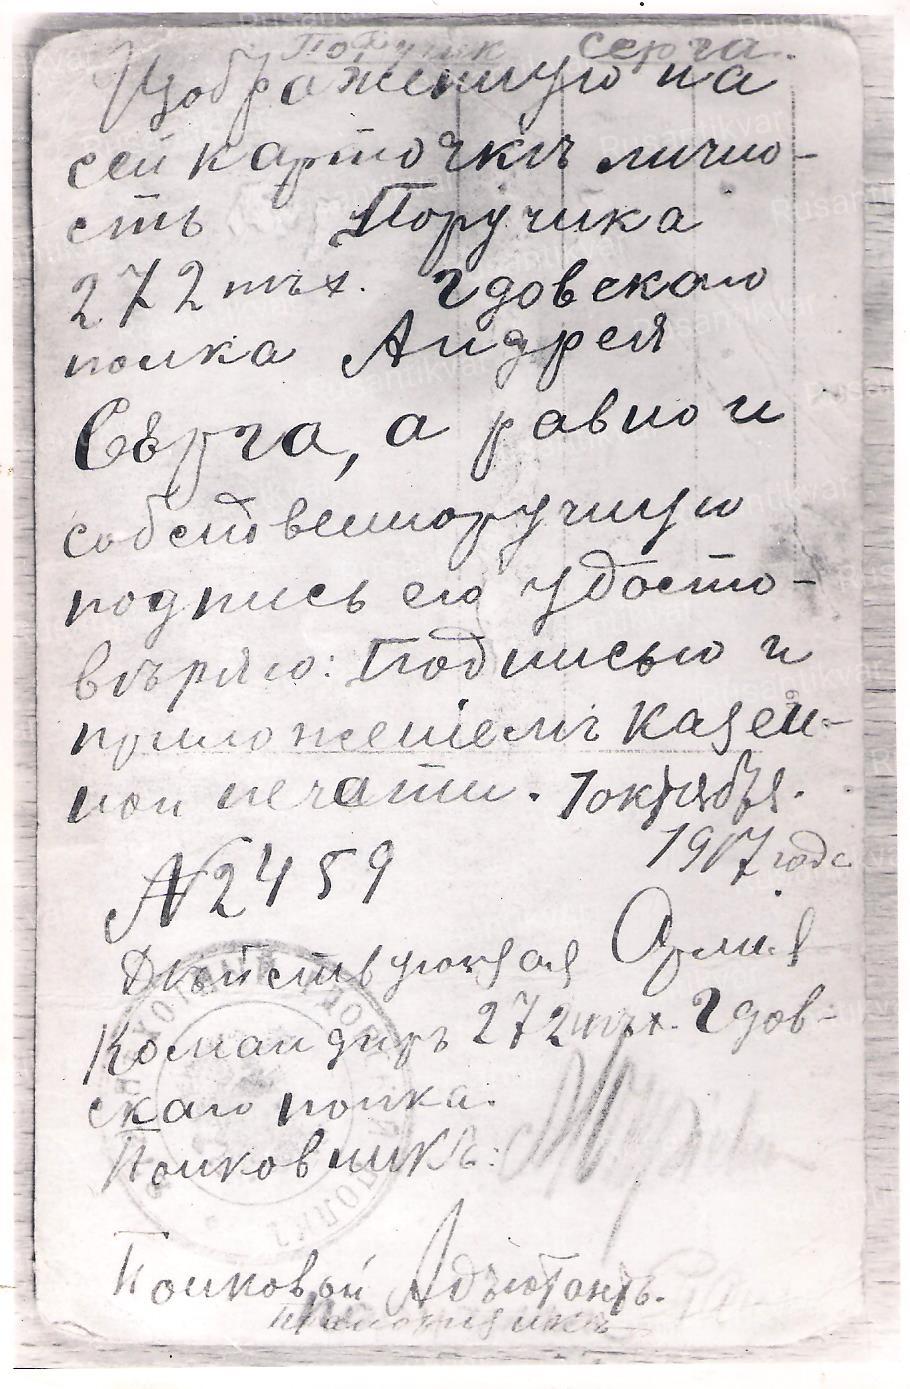 Поручик Серга.
Изображенную на
сей карточкѣ лично-
сть Поручика
272 пѣх. Гдовскаго
полка Андрея
Сѣрга, а равно и
собственноручную
подпись его удосто-
вѣряю: Подписью и
приложеніемъ казен-
ной печати. 1 октября.
1917 года
№ 2459
Дѣйствующая Армія
Командиръ 272 пѣх. Гдов-
скаго полка.
Полковникъ:
Полковый Адъютантъ.